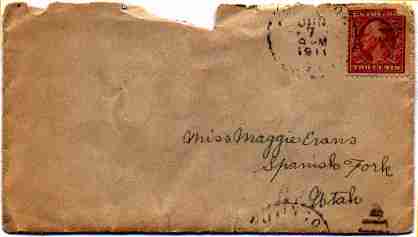 JUN
7
M
1911
TWO CENTS
Miss Maggie Evans
Spanish Fork
Utah